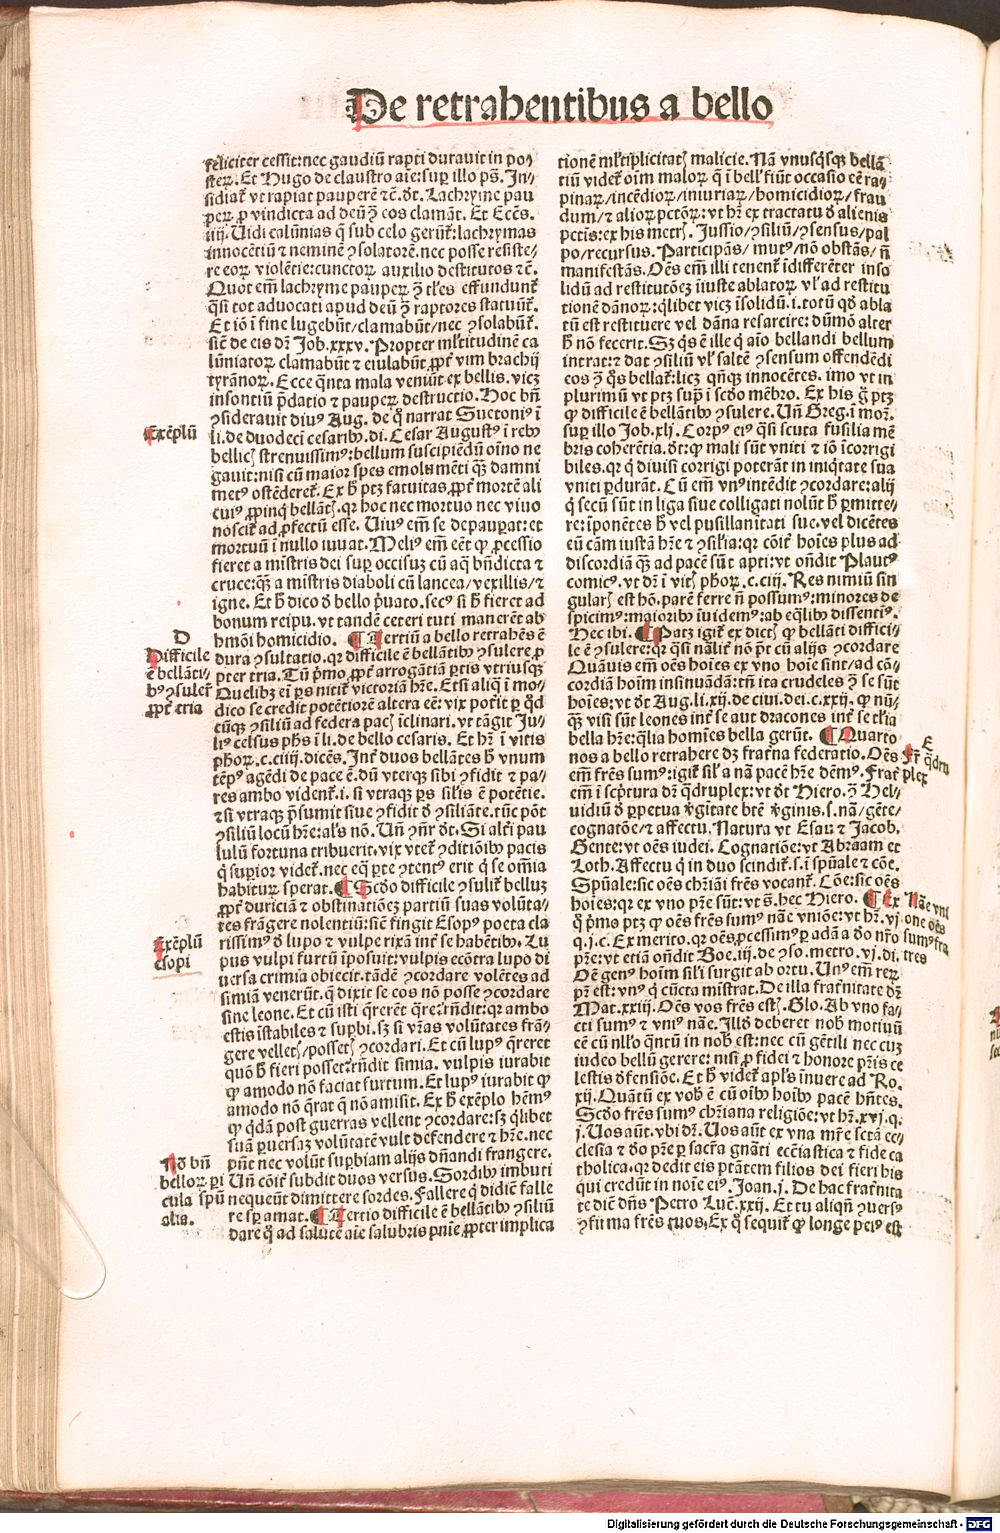 De retrahentibus a bello
feliciter cessit: nec gaudiū rapti durauit in po⸗
steꝝ. Et Hugo de claustro aīe: suꝑ illo ps̄. In⸗
sidiat᷑ vt rapiat pauperē ⁊c̄. dt̄. Lachryme pau
peꝝ ꝓ vindicta ad deū ꝯ̄ eos clamāt. Et Ecc̄s.
iiij. Uidi calūnias q̄ sub celo gerūt᷑: lachrymas
innocētiū ⁊ neminē ꝯsolatorē. nec posse resiste⸗
re eoꝝ violētie: cunctoꝝ auxilio destitutos ⁊c̄.
Quot em̄ lachryme paupeꝝ ꝯ̄ tl̓es effundunt᷑
q̄si tot aduocati apud deū ꝯ̄ raptores statuūt᷑.
Et iō ī fine lugebūt/ clamabūt/ nec ꝯsolabūt᷑.
sic̄ de eis dr̄ Job. xxxv. Propter ml̓titudinē ca
lūniatoꝝ clamabūt ⁊ eiulabūt ꝓpt̓ vim brachij
tyrānoꝝ. Ecce q̄nta mala veniūt ex bellis. vicꝫ
insontiū p̄datio ⁊ paupeꝝ destructio. Hoc bn̄
ꝯsiderauit diuꝰ Aug. de q̊ narrat Suetoniꝰ ī
li. de duodecī cesaribꝰ. di. Cesar Augustꝰ ī rebꝰ
bellicꝭ strenuissimꝰ: bellum suscipiēdū oīno ne
gauit: nisi cū maior spes emolumēti q̄ꝫ damni
metꝰ ostēderet᷑. Ex h̄ ptꝫ fatuitas ꝓpt̓ mortē ali
cuiꝰ ꝓpinq̓ bellātꝭ. qr hoc nec mortuo nec viuo
noscit᷑ ad ꝓfectū esse. Uiuꝰ em̄ se depauꝑat: et
mortuū ī nullo iuuat. Meliꝰ em̄ eēt ꝙ ꝓcessio
fieret a mīstris dei suꝑ occisuꝫ cū aq̄ bn̄dicta ⁊
cruce: q̄ꝫ a mīstris diaboli cū lancea/ vexillis/ ⁊
igne. Et h̄ dico ð bello p̓uato. secꝰ si h̄ fieret ad
bonum reipu. vt tandē ceteri tuti manerēt ab
hmōi homicidio. ¶ Tertiū a bello retrahēs ē
dura ꝯsultatio. qr difficile ē bellātibꝰ ꝯsulere ꝓ
pter tria. Tū p̓mo ꝓpt̓ arrogātiā ꝑtis vtriusqꝫ
Quelibꝫ em̄ ꝑs nitit᷑ victoriā hr̄e. Etsi aliq̄ ī mo⸗
dico se credit potētiorē altera eē: vix pot̓it ꝑ qd̓
cūqꝫ ꝯsiliū ad federa pacꝭ īclinari. vt tāgit Ju⸗
liꝰ celsus ph̄s ī li. de bello cesaris. Et hr̄ ī vitis
ph̄oꝝ. c. ciiij. dicēs. Int̓ duos bellātes h̄ vnum
tēpꝰ agēdi de pace ē. dū vterqꝫ sibi ꝯfidit ⁊ pa⸗
res ambo vident᷑. i. si vtraqꝫ ꝑs sil̓is ē potētie.
⁊ si vtraqꝫ p̄sumit siue ꝯfidit ð ꝯsiliāte. tūc pōt
ꝯsiliū locū hr̄e: al̓s nō. Un̄ ꝯn̄r dt̄. Si alt̓i pau
lulū fortuna tribuerit. vix vtet᷑ ꝯditiōibꝰ pacis
q̓ suꝑior videt᷑. nec eq̄ ꝑte ꝯtentꝰ erit q̓ se omīa
habituꝝ sperat. ¶ Scd̓o difficile ꝯsulit᷑ belluꝫ
ꝓpt̓ duriciā ⁊ obstinatiōeꝫ partiū suas volūta⸗
tes frāgere nolentiū: sic̄ fingit Esopꝰ poeta cla
rissimꝰ ð lupo ⁊ vulpe rixā int̓ se habētibꝰ. Lu
pus vulpi furtū īposuit: vulpis ecōtra lupo di
uersa crimīa obiecit. tādē ꝯcordare volētes ad
simiā venerūt. q̄ dixit se eos nō posse ꝯcordare
sine leone. Et cū isti q̄rerēt q̄re: rn̄dit: qr ambo
estis īstabiles ⁊ suꝑbi. sꝫ si vr̄as volūtates frā⸗
gere velletꝭ/ possetꝭ ꝯcordari. Et cū lupꝰ q̄reret
quō h̄ fieri posset: rn̄dit simia. vulpis iurabit
ꝙ amodo nō faciat furtum. Et lupꝰ iurabit ꝙ
amodo nō q̄rat q̄ nō amisit. Ex h̄ exēplo hēmꝰ
ꝙ q̓dā post guerras vellent ꝯcordare: sꝫ q̓libet
suā ꝑuersaꝫ volūtatē vult defendere ⁊ hr̄e. nec
pn̄t nec volūt suꝑbiam alijs dn̄andi frangere.
Un̄ cōit̓ subdit duos versus. Sordibꝰ imbuti
nequeūt dimittere sordes. Fallere q̓ didicit falle
re sꝑ amat. ¶ Tertio difficile ē bellātibꝰ ꝯsiliū
dare q̊ ad salutē aīe salubris pn̄ie ꝓpter implica
Exēplū
D
Difficile
ē bellāti⸗
bꝰ ꝯsuler̓
ꝓpt̓ tria
Exēplū
esopi
Nō bn̄
belloꝝ ꝑi
cula spū
alia.
tionē ml̓tiplicitatꝭ malicie. Nā vnusq̓sqꝫ bellā
tiū videt᷑ oīm maloꝝ q̄ ī bell̓ fiūt occasio eē ra⸗
pinaꝝ/ incēdioꝝ/ iniuriaꝝ/ homicidioꝝ/ frau
dum/ ⁊ alioꝝ pctōꝝ: vt hr̄ ex tractatu ð alienis
pctīs: ex his metrꝭ. Jussio/ ꝯsiliū/ ꝯsensus/ pal
po/ recursus. Participās/ mutꝰ/ nō obstās/ n̄
manifestās. Oēs em̄ illi tenent᷑ īdifferēter inso
lidū ad restitutōeꝫ iniuste ablatoꝝ vl̓ ad restitu
tionē dānoꝝ: q̓libet vicꝫ īsolidū. i. totū qd̓ abla
tū est restituere vel dāna resarcire: dūmō alter
h̄ nō fecerit. Sꝫ q̓s ē ille q̓ aīo bellandi bellum
intrat: ⁊ dat ꝯsiliū vl̓ saltē ꝯsensum offendēdi
eos ꝯ̄ q̊s bellat᷑: licꝫ qn̄qꝫ innocētes. imo vt in
plurimū vt ptꝫ sup̓ ī scd̓o mēbro. Ex his g̊ ptꝫ
ꝙ difficile ē bellātibꝰ ꝯsulere. Un̄ Greg. ī mor̓.
suꝑ illo Job. xlj. Corpꝰ eiꝰ q̄si scuta fusilia mē
bris coherētia. dt̄: ꝙ mali sūt vniti ⁊ iō īcorrigi
biles. qr q̓ diuisi corrigi poterāt in iniq̓tate sua
vniti ꝑdurāt. Cū em̄ vnꝰ intēdit ꝯcordare: alij
q̓ secū sūt in liga siue colligati nolūt h̄ ꝑmitte⸗
re: īponētes h̄ vel pusillanitati sue. vel dicētes
eū cām iustā hr̄e ⁊ sil̓ia: qr cōit̓ hoīes plus ad
discordiā q̄ꝫ ad pacē sūt apti: vt oñdit Plautꝰ
comicꝰ. vt dr̄ ī vitꝭ ph̄oꝝ. c. ciij. Res nimiū sin
gularꝭ est hō. parē ferre n̄ possumꝰ: minores de
spicimꝰ: maioribꝰ īuidemꝰ: ab eq̄libꝰ dissentiꝰ.
Hec ibi. ¶ Patꝫ igit᷑ ex dictꝭ ꝙ bellāti diffici⸗
le ē ꝯsulere: qr q̄si nālit̓ nō pt̄ cū alijs ꝯcordare
Quāuis em̄ oēs hoīes ex vno hoīe sint/ ad cō⸗
cordiā hoīm insinuādā: tn̄ ita crudeles ꝯ̄ se sūt
hoīes: vt dt̄ Aug. li. xij. de ciui. dei. c. xxij. ꝙ nū⸗
q̄ꝫ visi sūt leones int̓ se aut dracones int̓ se tl̓ia
bella hr̄e: q̄lia homīes bella gerūt. ¶ Quarto
nos a bello retrahere dꝫ frat̓na federatio. Oēs
em̄ frēs sumꝰ: igit᷑ sil̓ a nā pacē hr̄e dēmꝰ. Frat̓
em̄ ī sc̓ptura dr̄ q̓druplex: vt dt̄ Hiero. ꝯ̄ Hel⸗
uidiū ð ꝑpetua v̓gitate btē v̓ginis. s. nā/ gēte/
cognatōe/ ⁊ affectu. Natura vt Esau ⁊ Jacob.
Gente: vt oēs iudei. Cognatiōe: vt Abraam et
Loth. Affectu q̓ in duo scindit᷑. s. ī spūale ⁊ cōe.
Spūale: sic oēs chr̄iāi frēs vocant᷑. Cōe: sic oēs
hoīes: qr ex vno pr̄e sūt: vt s̄. hec Hiero. ¶ Ex
q̊ p̓mo ptꝫ ꝙ oēs frēs sumꝰ nāe vniōe: vt hr̄. vj
q. j. c. Ex merito. qr oēs ꝓcessimꝰ ꝑ adā a ðo nr̄o
pr̄e: vt etiā oñdit Boe. iij. de ꝯso. metro. vj. di.
Oē genꝰ hoīm sil̓i surgit ab ortu. Unꝰ em̄ reꝝ
pr̄ est: vnꝰ q̓ cūcta mīstrat. De illa frat̓nitate dr̄
Mat. xxiij. Oēs vos frēs estꝭ. Glo. Ab vno fa⸗
cti sumꝰ ⁊ vniꝰ nāe. Illd̓ deberet nob̄ motiuū
eē cū nl̓lo q̄ntū in nob̄ est: nec cū gētili nec cuꝫ
iudeo bellū gerere: nisi ꝓ fidei ⁊ honore pr̄is ce
lestis ðfensiōe. Et h̄ videt᷑ apl̓s īnuere ad Ro.
xij. Quātū ex vob̄ ē cū oībꝰ hoībꝰ pacē hn̄tes.
Scd̓o frēs sumꝰ chr̄iana religiōe: vt hr̄. xvj. q.
j. Uos aūt. vbi dr̄. Uos aūt ex vna mr̄e sctā ec⸗
clesia ⁊ ðo pr̄e ꝑ sacr̄a gnāti eccīastica ⁊ fide ca
tholica. qr dedit eis ptātem filios dei fieri his
qui credūt in noīe eiꝰ. Joan. j. De hac frat̓nita
te dic̄ dn̄s Petro Luc̄. xxij. Et tu aliqn̄ ꝯuersꝰ
ꝯfirma frēs tuos. Ex q̊ sequit᷑ ꝙ longe peiꝰ est
E
Fr̄ q̓dru
plex
Nāe vni
one oēs
sumꝰ fra
tres